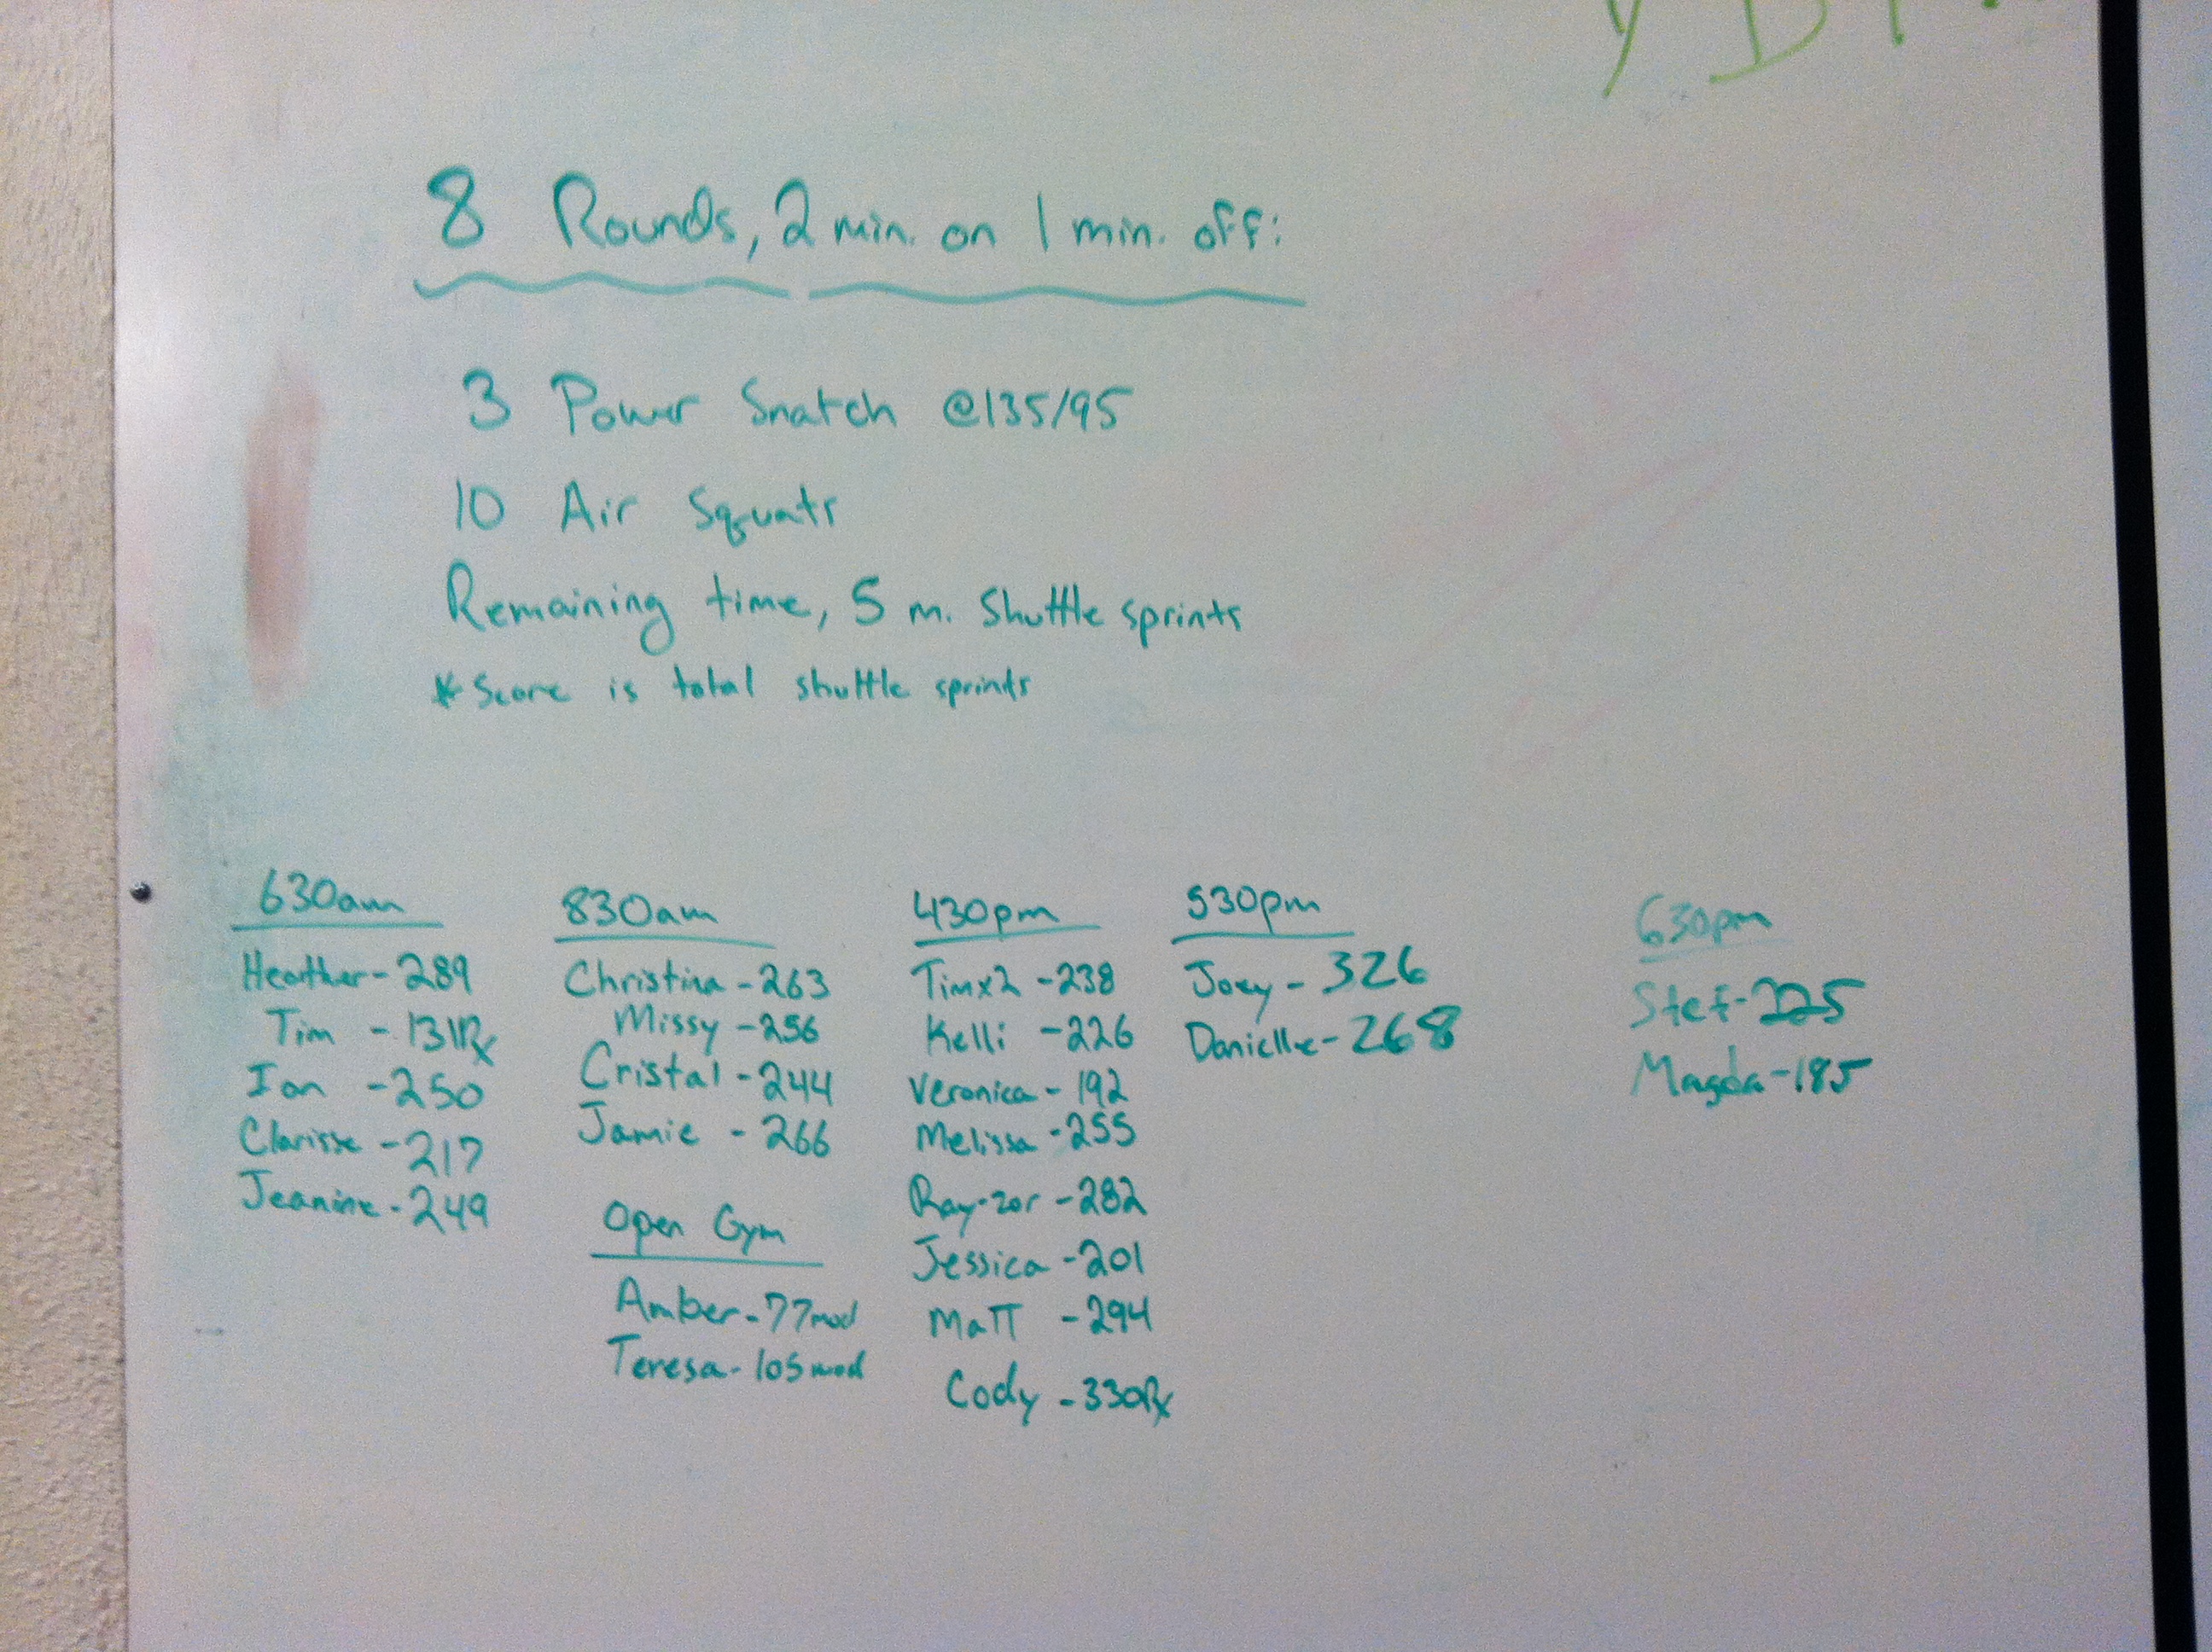 8 Rounds, 2 min. on 1 min. off:
3 Power Snatch @135/95
10 Air Squats
Remaining time, 5 m. Shuttle sprints
* Score is total shuttle sprints
630am
Heather - 289
Tim - 131Rx
Ian - 250
Clarisse - 217
Jeanine - 249
830am
Christina - 263
Missy - 256
Cristal - 244
Jamie - 266
Open Gym
Amber - 77mod
Teresa - 105mod
430pm
Timx2 - 238
Kelli - 226
Veronica - 192
Melissa - 255
Ray-zor - 282
Jessica - 201
MaTT - 294
Cody - 330Rx
530pm
Joey - 326
Danielle - 268
630pm
Stef - 225
Magda - 185